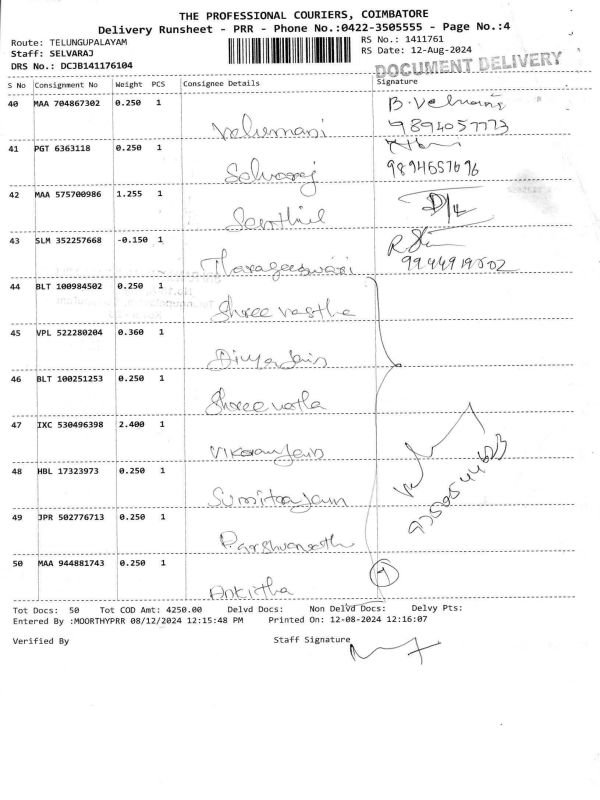 THE PROFESSIONAL COURIERS, COIMBATORE
Delivery Runsheet - PRR - Phone No.:0422-3505555 - Page No.:4
Route: TELUNGUPALAYAM
RS No.: 1411761
Staff: SELVARAJ
RS Date: 12-Aug-2024
DRS No.: DCJB141176104
DOCUMENT DELIVERY
S No Consignment No Weight PCS Consignee Details Signature
40 MAA 704867302 0.250 1
Velumani
B. Velumani
9894057773
41 PGT 6363118 0.250 1
Selvaraj
9894657696
42 MAA 575700986 1.255 1
Senthil
43 SLM 352257668 -0.150 1
Tharageeswari
9944919502
44 BLT 100984502 0.250 1
Shree vastha
45 VPL 522280204 0.360 1
Divya Jain
46 BLT 100251253 0.250 1
Shree vastha
47 IXC 530496398 2.400 1
Vikram Jain
48 HBL 17323973 0.250 1
Sumitra Jain
49 JPR 502776713 0.250 1
Parshvanath
50 MAA 944881743 0.250 1
Ankitha
Tot Docs: 50 Tot COD Amt: 4250.00 Delvd Docs: Non Delvd Docs: Delvy Pts:
Entered By :MOORTHYPRR 08/12/2024 12:15:48 PM Printed On: 12-08-2024 12:16:07
Verified By
Staff Signature